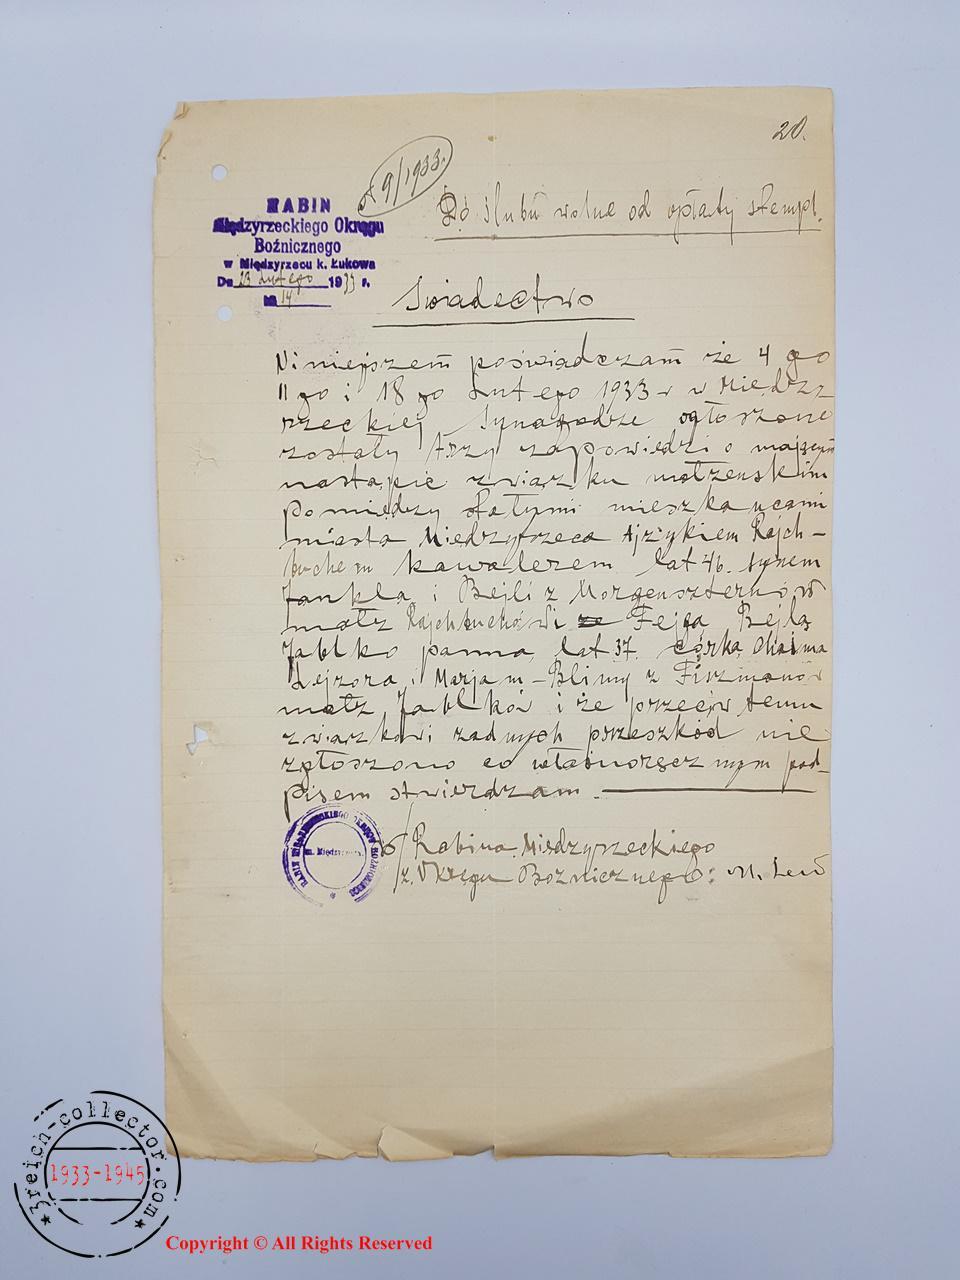 20.
A 9/1933.
RABIN
Międzyrzeckiego Okręgu
Bożnicznego
w Międzyrzecu k. Łukowa
Dn 23 Lutego 1933 r.
№ 14
Do ślubu wolne od opłaty stempl.
Świadectwo
Niniejszem poświadczam że 4 go
11 go i 18 go Lutego 1933 r w Między
rzeckiej Synagodze ogłoszone
zostały trzy zapowiedzi o mającym
nastąpić związku małżenskim
pomiędzy stałymi mieszkańcami
miasta Międzyrzeca Ajzykiem Rajch-
buchem kawalerem lat 46. synem
Jankla i Bejli z Morgenszternów
małż Rajchbuchów i ze Fejga Bejlą
Jabłko panna, lat 37. córką Chaima
Lejzora i Marjam-Blimy z Firzmanów
małż Jabłków i że przeciw temu
związkowi żadnych przeszkód nie
zgłoszono co własnoręcznym pod-
pisem stwierdzam.
Rabina Międzyrzeckiego
Okręgu Bożnicznego: M. Lew
RABIN MIĘDZYRZECKIEGO OKRĘGU BOŻNICZNEGO
m. Międzyrzec
3reich-collector.com
1933-1945
Copyright © All Rights Reserved